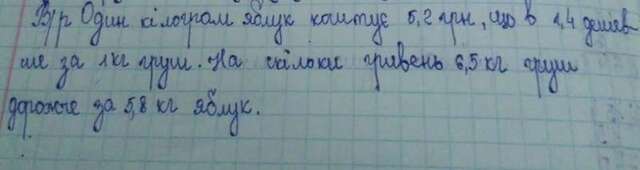 В/р Один кілограм яблук коштує 5,2 грн, що в 1,4 дешев
ше за 1 кг груш. На скільки гривень 6,5 кг груш
дорожче за 5,8 кг яблук.